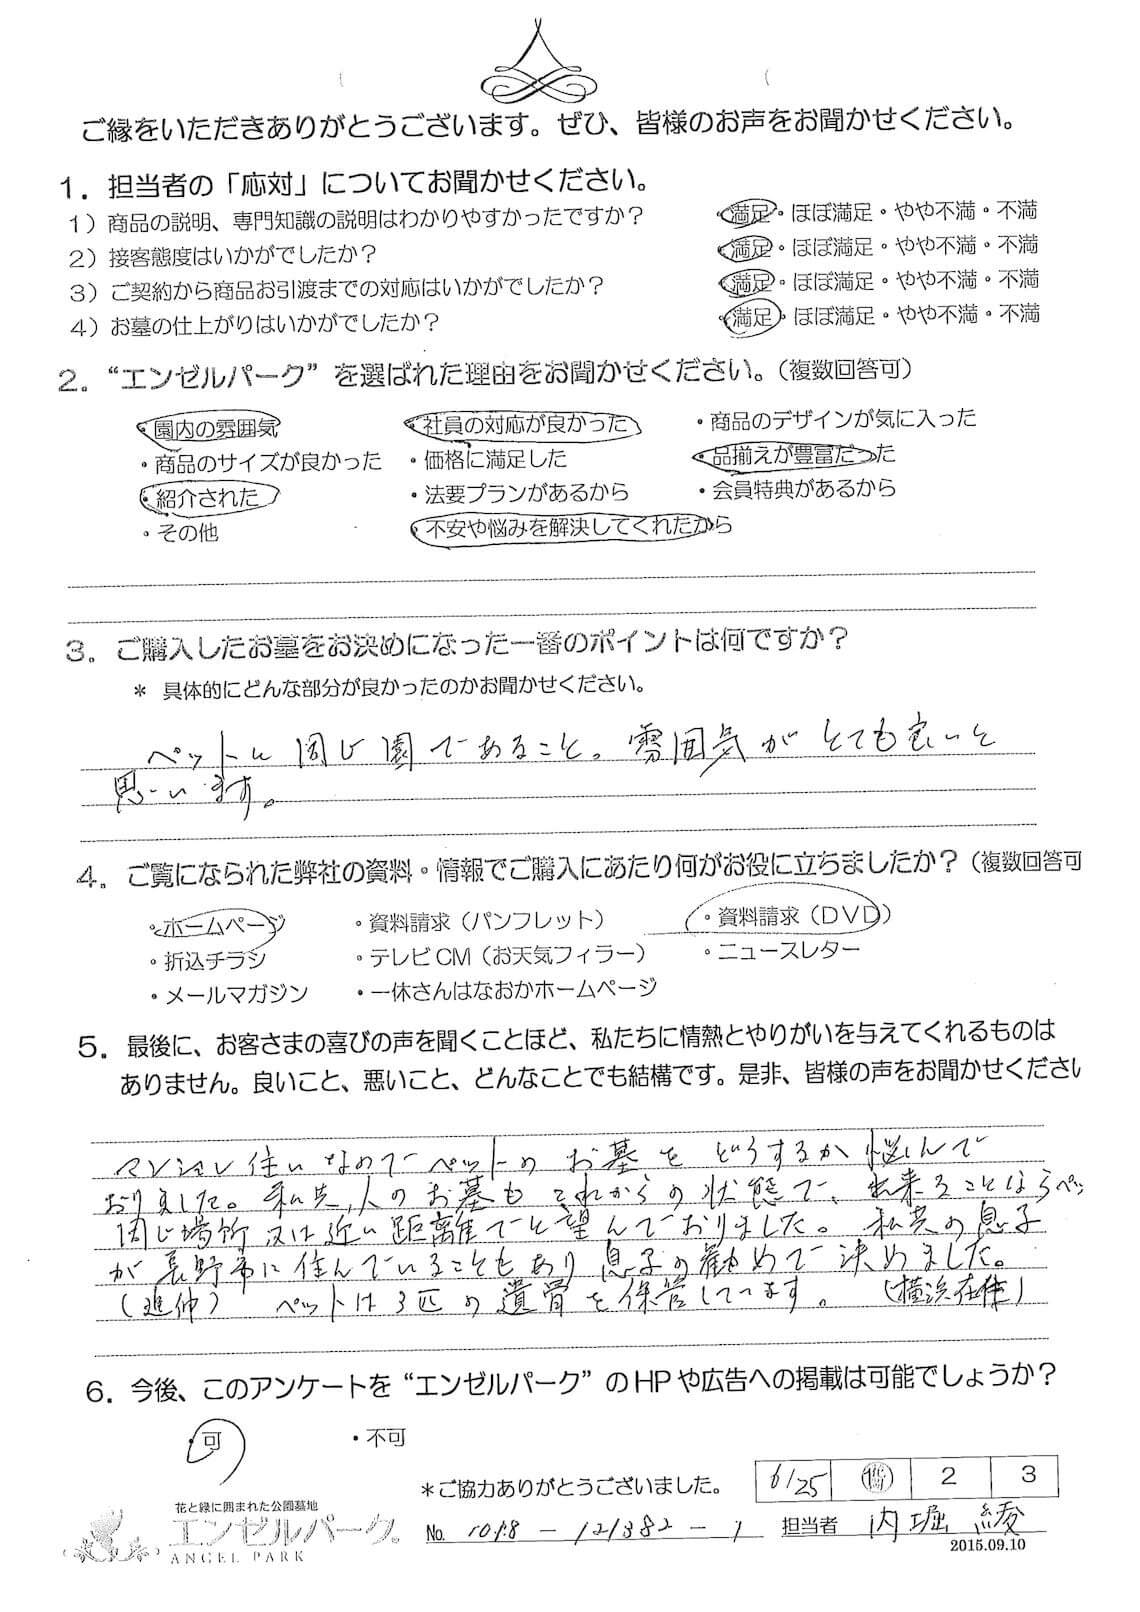 ご縁をいただきありがとうございます。ぜひ、皆様のお声をお聞かせください。
1．担当者の「応対」についてお聞かせください。
1）商品の説明、専門知識の説明はわかりやすかったですか？ ・満足・ほぼ満足・やや不満・不満
2）接客態度はいかがでしたか？ ・満足・ほぼ満足・やや不満・不満
3）ご契約から商品お引渡までの対応はいかがでしたか？ ・満足・ほぼ満足・やや不満・不満
4）お墓の仕上がりはいかがでしたか？ ・満足・ほぼ満足・やや不満・不満
2．“エンゼルパーク”を選ばれた理由をお聞かせください。（複数回答可）
・園内の雰囲気 ・社員の対応が良かった ・商品のデザインが気に入った
・商品のサイズが良かった ・価格に満足した ・品揃えが豊富だった
・紹介された ・法要プランがあるから ・会員特典があるから
・その他 ・不安や悩みを解決してくれたから
3．ご購入したお墓をお決めになった一番のポイントは何ですか？
＊ 具体的にどんな部分が良かったのかお聞かせください。
ペットと同じ園であること。雰囲気がとても良いと
思います。
4．ご覧になられた弊社の資料・情報でご購入にあたり何がお役に立ちましたか？（複数回答可
・ホームページ ・資料請求（パンフレット） ・資料請求（DVD）
・折込チラシ ・テレビCM（お天気フィラー） ・ニュースレター
・メールマガジン ・一休さんはなおかホームページ
5．最後に、お客さまの喜びの声を聞くことほど、私たちに情熱とやりがいを与えてくれるものは
ありません。良いこと、悪いこと、どんなことでも結構です。是非、皆様の声をお聞かせくださ
マンション住いなのでペットのお墓をどうするか悩んで
おりました。私共、人のお墓もこれからの状態で、出来ることならペッ
同じ場所又は近い距離でと望んでおりました。私共の息子
が長野市に住んでいることもあり息子の勧めで決めました。
（追伸） ペットは3匹の遺骨を保管してます。（横浜在住）
6．今後、このアンケートを“エンゼルパーク”のHPや広告への掲載は可能でしょうか？
・可 ・不可
＊ご協力ありがとうございました。 6/25 2 3
花と緑に囲まれた公園墓地
エンゼルパーク。
ANGEL PARK
No. 1018-121382-1 担当者 内堀 綾
2015.09.10